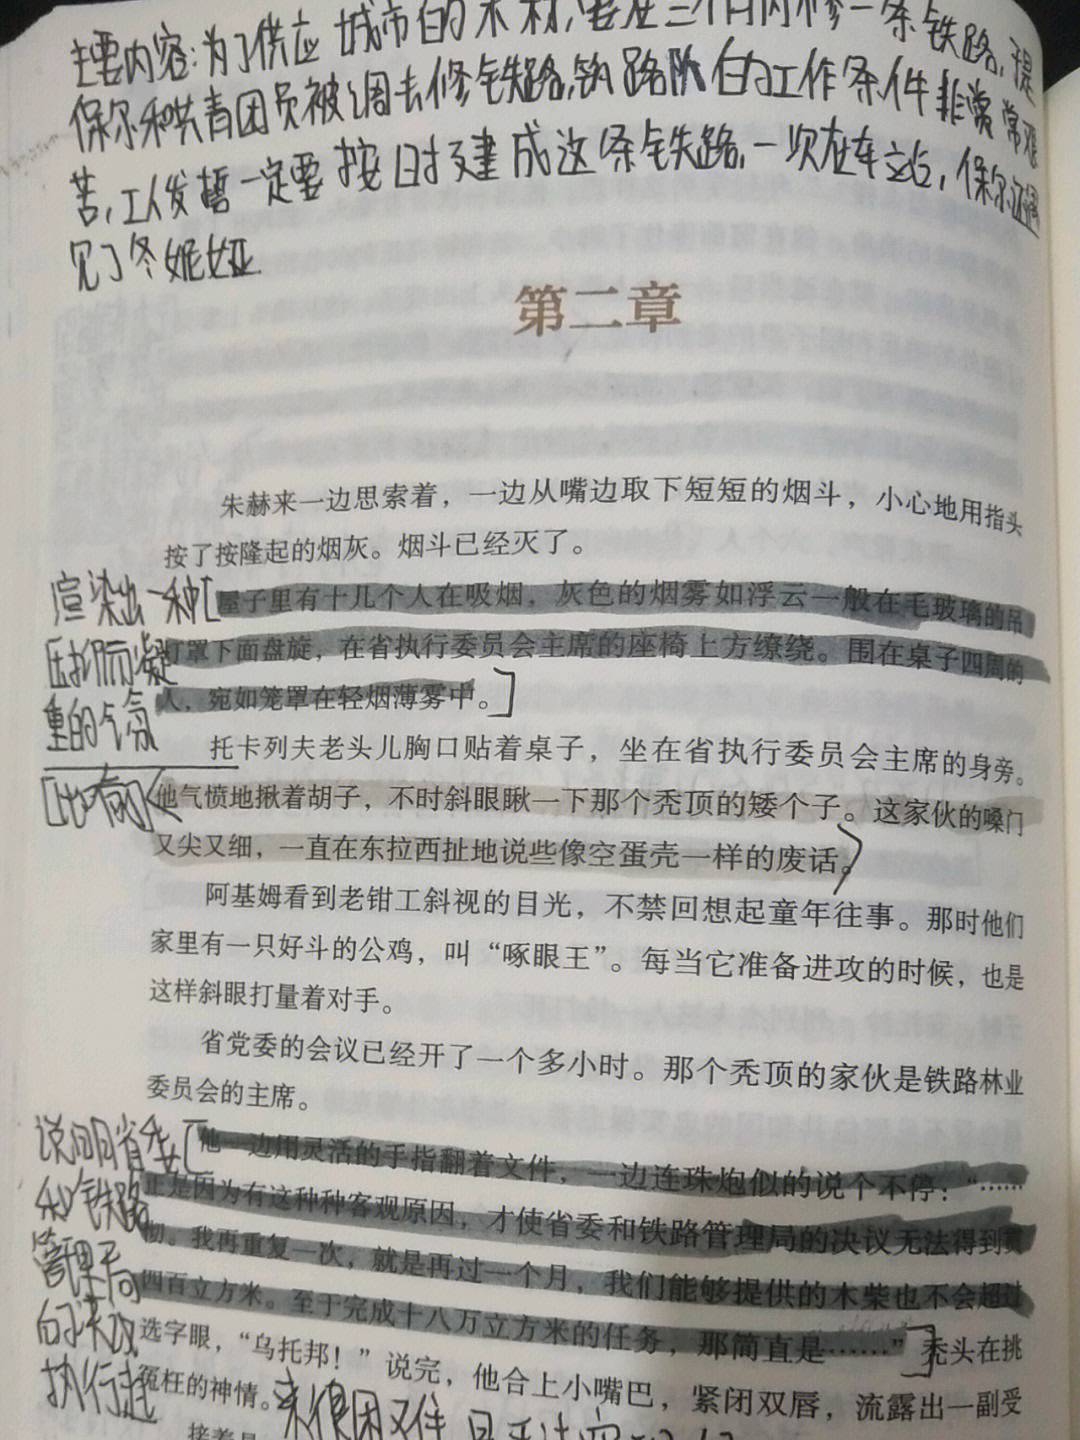 主要内容：为了供应城市的木材，要在三个月内修一条铁路，于是
保尔和共青团员被调去修铁路，筑路队的工作条件非常艰
苦，工人发誓一定要按时建成这条铁路，一次在车站，保尔
见了冬妮娅
第二章
朱赫来一边思索着，一边从嘴边取下短短的烟斗，小心地用指头
按了按隆起的烟灰。烟斗已经灭了。
屋子里有十几个人在吸烟，灰色的烟雾如浮云一般在毛玻璃的吊
灯罩下面盘旋，在省执行委员会主席的座椅上方缭绕。围在桌子四周的
人，宛如笼罩在轻烟薄雾中。
渲染出一种
压抑而凝
重的气氛
托卡列夫老头儿胸口贴着桌子，坐在省执行委员会主席的身旁。
他气愤地揪着胡子，不时斜眼瞅一下那个秃顶的矮个子。这家伙的嗓门
又尖又细，一直在东拉西扯地说些像空蛋壳一样的废话。
比喻
阿基姆看到老钳工斜视的目光，不禁回想起童年往事。那时他们
家里有一只好斗的公鸡，叫“啄眼王”。每当它准备进攻的时候，也是
这样斜眼打量着对手。
省党委的会议已经开了一个多小时。那个秃顶的家伙是铁路林业
委员会的主席。
他一边用灵活的手指翻着文件，一边连珠炮似的说个不停：“……
正是因为有这种种客观原因，才使省委和铁路管理局的决议无法得到贯
彻。我再重复一次，就是再过一个月，我们能够提供的木柴也不会超过
四百立方米。至于完成十八万立方米的任务，那简直是……”秃头在挑
选字眼，“乌托邦！”说完，他合上小嘴巴，紧闭双唇，流露出一副受
冤枉的神情。
说明省委
和铁路
管理局
的决议
执行起
来很困难
接着是